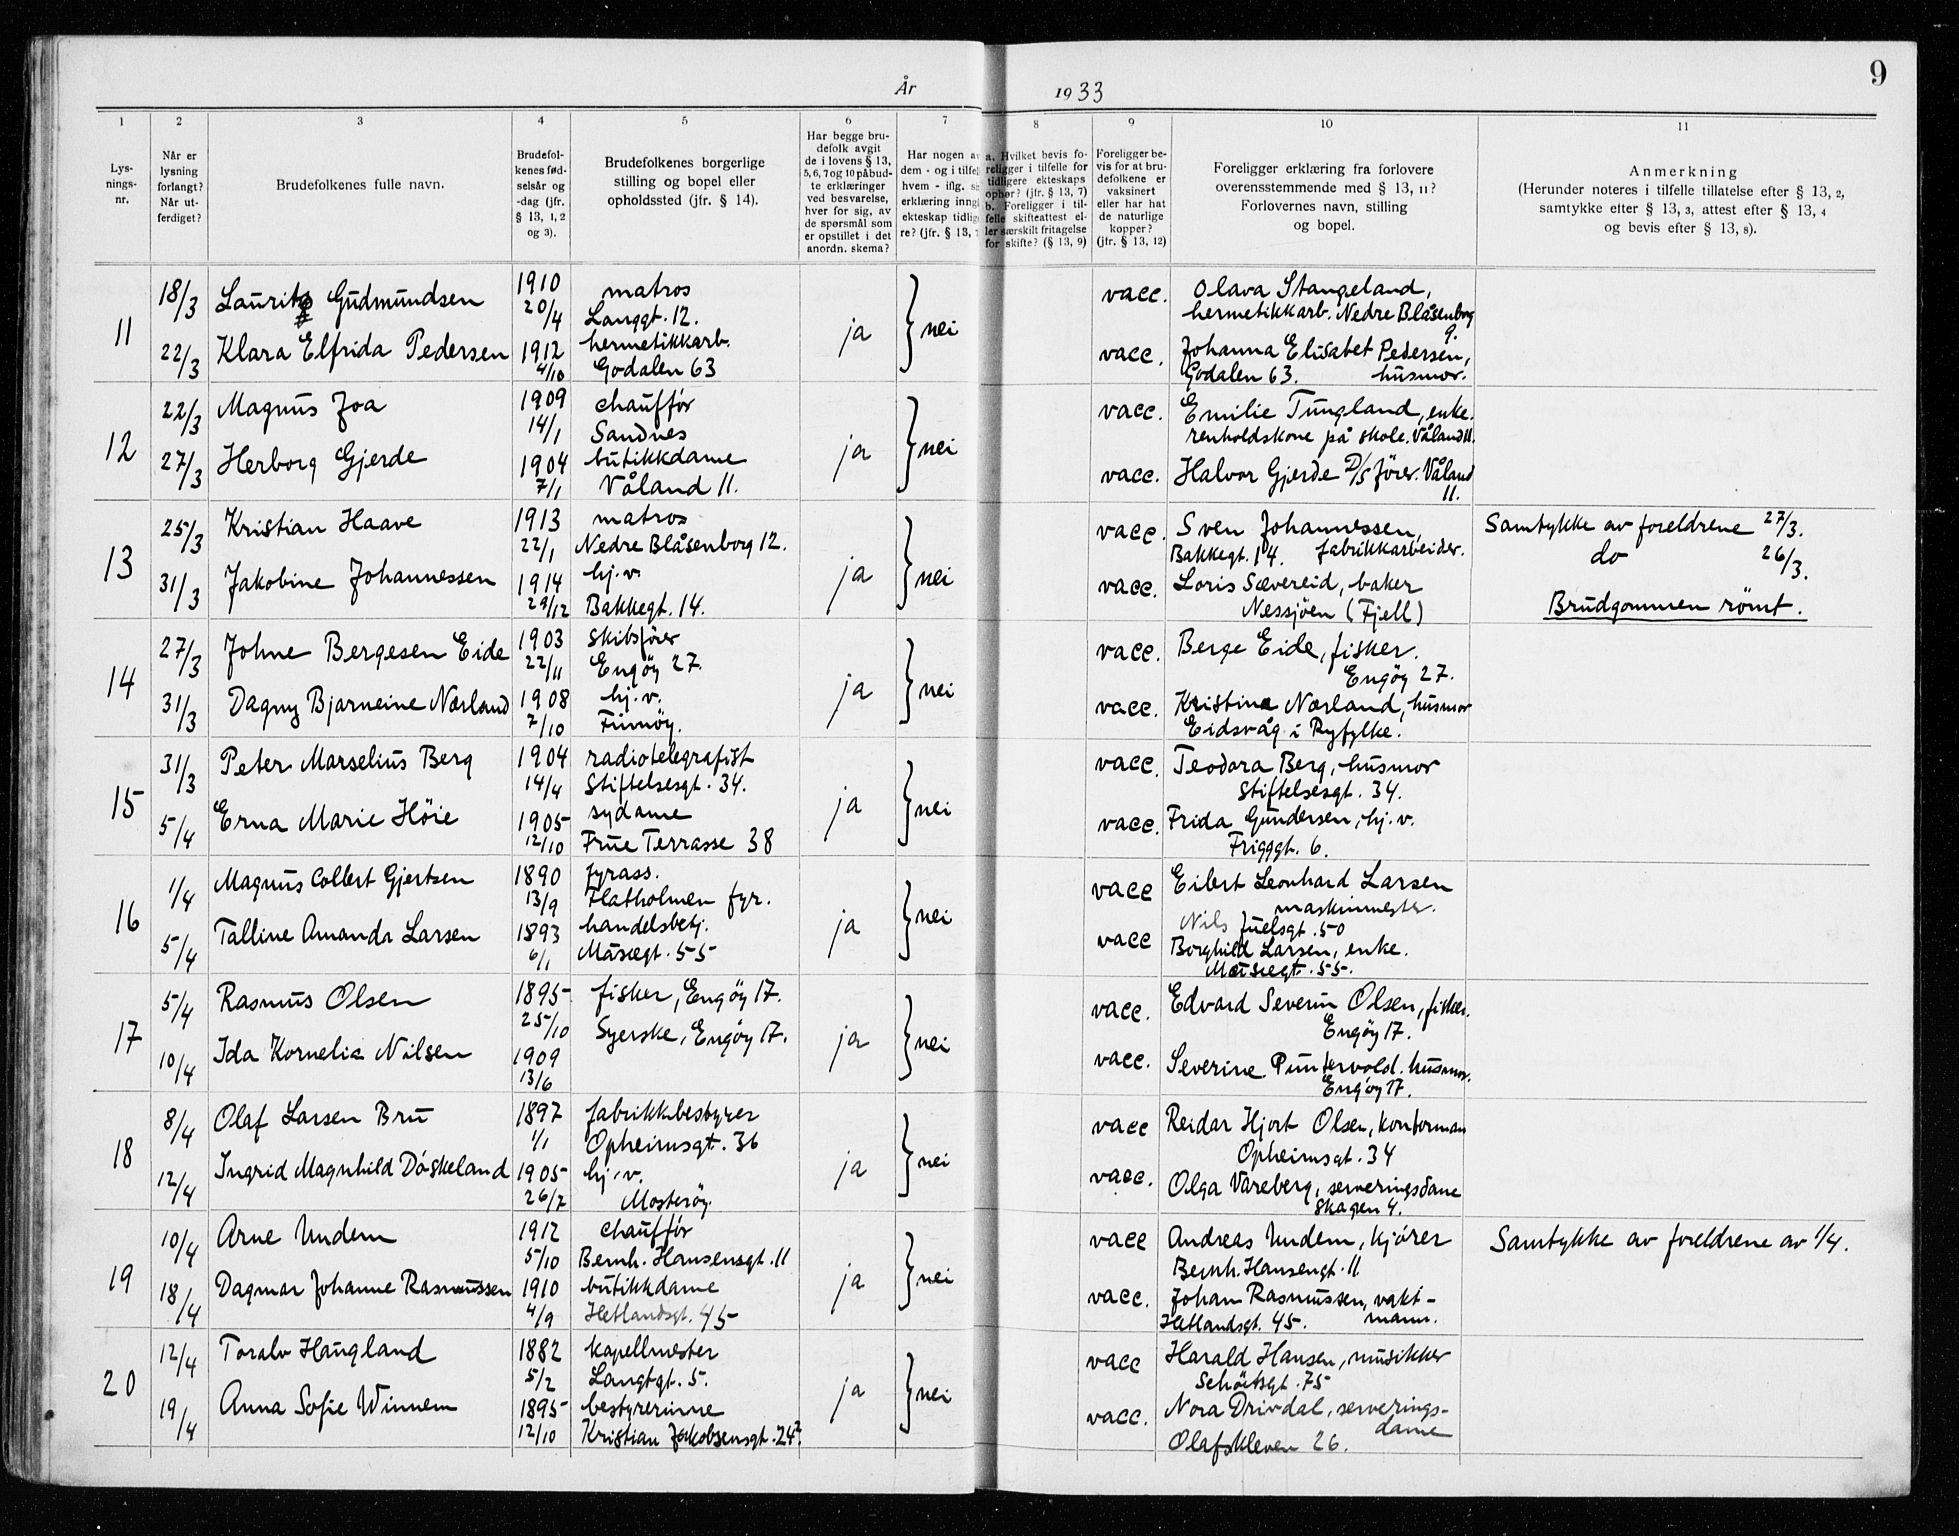 År 1933 9
1 2 3 4 5 6 7 8 9 10 11
Lys-
nings-
nr.
Når er
lysning
forlangt?
Når ut-
ferdiget?
Brudefolkenes fulle navn.
Brudefol-
kenes fød-
selsår og
-dag (jfr.
§ 13, 1, 2
og 3).
Brudefolkenes borgerlige
stilling og bopel eller
opholdssted (jfr. § 14).
Har begge bru-
defolk avgit
de i lovens § 13,
5, 6, 7 og 10 påbud-
te erklæringer
ved besvarelse,
hver for sig, av
de spørsmål som
er opstillet i det
anordn. skema?
Har nogen a
dem - og i tilfel
hvem - iflg. s
erklæring inng
ekteskap tidlig
re? (jfr. § 13,
a. Hvilket bevis fo-
religger i tilfelle for
tidligere ekteskaps
ophør? (jfr. § 13, 7)
b. Foreligger i til-
felle skifteattest el-
ler særskilt fritagelse
for skifte? (§ 13, 9)
Foreligger be-
vis for at bru-
defolkene er
vaksinert
eller har hat
de naturlige
kopper?
(jfr. § 13, 12)
Foreligger erklæring fra forlovere
overensstemmende med § 13, 11?
Forlovernes navn, stilling
og bopel.
Anmerkning
(Herunder noteres i tilfelle tillatelse efter § 13, 2,
samtykke efter § 13, 3, attest efter § 13, 4
og bevis efter § 13, 8).
11
18/3 Lauritz Gudmundsen 1910 20/4 matros
Langgt. 12.
22/3 Klara Elfrida Pedersen 1912 4/10 hermetikkarb.
Godalen 63
ja } nei
vacc. Olava Stangeland,
hermetikkarb. Nedre Blåsenborg
9.
vacc. Johanna Elisabet Pedersen,
Godalen 63. husmor.
12
22/3 Magnus Joa 1909 14/1 chauffør
Sandnes
27/3 Herborg Gjerde 1904 7/1 butikkdame
Våland 11.
ja } nei
vacc. Emilie Tungland, enke.
renholdskone på skole. Våland 11.
vacc. Halvor Gjerde D/S fører. Våland
11.
13
25/3 Kristian Haave 1913 22/1 matros
Nedre Blåsenborg 12.
31/3 Jakobine Johannessen 1914 29/12 hj.v.
Bakkegt. 14.
ja } nei
vacc. Sven Johannessen,
Bakkegt. 14. fabrikkarbeider.
vacc. Loris Sævereid, baker
Nessjøen (Fjell)
Samtykke av foreldrene 27/3.
do 26/3.
Brudgommen rømt.
14
27/3 Johne Bergesen Eide 1903 22/11 skibsfører
Engöy 27.
31/3 Dagny Bjarneine Nærland 1908 7/10 hj.v.
Finnöy.
ja } nei
vacc. Berge Eide, fisker.
Engöy 27.
vacc. Kristine Nærland, husmor
Eidsvåg i Ryfylke.
15
31/3 Peter Marselius Berg 1904 14/4 radiotelegrafist
Stiftelsesgt. 34.
5/4 Erna Marie Höie 1905 12/10 sydame
Frue Terrasse 38
ja } nei
vacc. Teodora Berg, husmor
Stiftelsesgt. 34.
vacc. Frida Gundersen, hj.v.
Frigggt. 6.
16
1/4 Magnus Collert Gjertsen 1890 13/9 fyrass.
Flatholmen fyr.
5/4 Talline Amanda Larsen 1893 6/1 handelsbetj.
Musegt. 55
ja } nei
vacc Eilert Leonhard Larsen
maskinmester.
Nils Juelsgt. 50
vacc Borghild Larsen, enke.
Musegt. 55.
17
5/4 Rasmus Olsen 1895 25/10 fisker, Engöy 17.
10/4 Ida Kornelia Nilsen 1909 13/6 Syerske, Engöy 17.
ja } nei
vacc. Edvard Severin Olsen, fisker.
Engöy 17.
vacc. Severine Puntervold. husmor.
Engöy 17.
18
8/4 Olaf Larsen Bru 1897 1/1 fabrikkbestyrer
Opheimsgt. 36
12/4 Ingrid Magnhild Döskeland 1905 26/7 hj.v.
Mosteröy.
ja } nei
vacc Reidar Hjort Olsen, kontorman
Opheimsgt. 34
vacc. Olga Vareberg, serveringsdame
Skagen 4.
19
10/4 Arne Undem 1912 5/10 chauffør
Bernh. Hansensgt. 11
18/4 Dagmar Johanne Rasmussen 1910 4/9 butikkdame
Hetlandsgt. 45
ja } nei
vacc Andreas Undem, kjører
Bernh. Hansengt. 11
vacc. Johan Rasmussen, vakt-
Hetlandsgt. 45. mann.
Samtykke av foreldrene av 1/4.
20
12/4 Toralv Haugland 1882 5/2 kapellmester
Langtgt. 5.
19/4 Anna Sofie Winnem 1895 12/10 bestyrerinne
Kristian Jakobsensgt. 24²
ja } nei
vacc Harald Hansen, musikker
Schöitsgt. 75
vacc. Nora Drivdal, serverings-
dame
Olafskleven 26.